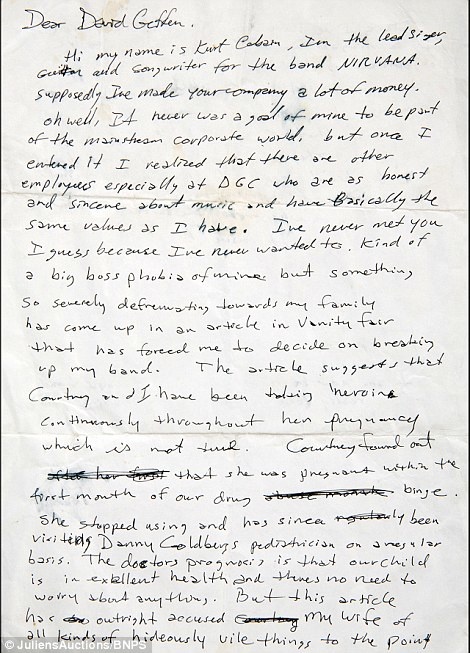 Dear David Geffen.
Hi my name is Kurt Cobain, I'm the lead singer,
guitar and songwriter for the band NIRVANA.
Supposedly I've made your company a lot of money.
oh well, It never was a goal of mine to be part
of the mainstream corporate world, but once I
entered it I realized that there are other
employees especially at DGC who are as honest
and sincere about music and have Basically the
same values as I have. I've never met you
I guess because I've never wanted to. Kind of
a big boss phobia of mine but something
so severely defremating towards my family
has come up in an article in Vanity fair
that has forced me to decide on breaking
up my band. The article suggests that
Courtney and I have been taking heroin
continuously throughout her pregnancy
which is not true. Courtney found out
after her first that she was pregnant within the
first month of our drug binge.
She stopped using and has since regularly been
visiting Danny Goldbergs pediatrician on a regular
basis. The doctors prognosis is that our child
is in exellent health and theres no need to
worry about anything. But this article
has outright accused Courtney My wife of
all kinds of hideously vile things to the point
© JuliensAuctions/BNPS